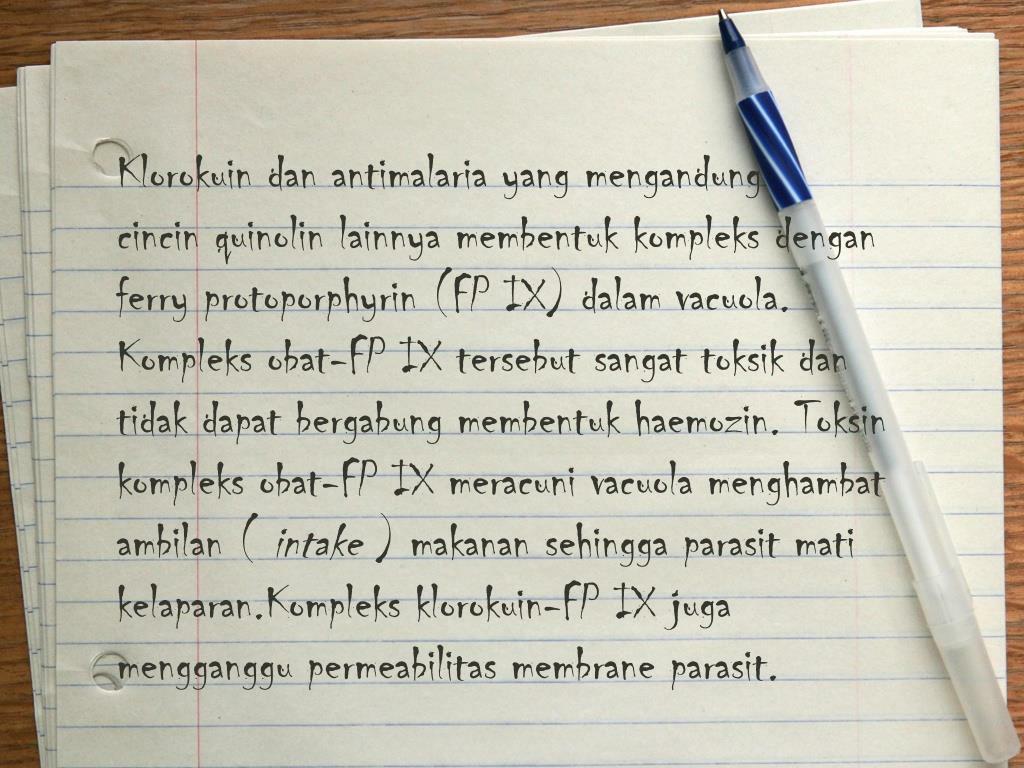 Klorokuin dan antimalaria yang mengandung
cincin quinolin lainnya membentuk kompleks dengan
ferry protoporphyrin (FP IX) dalam vacuola.
Kompleks obat-FP IX tersebut sangat toksik dan
tidak dapat bergabung membentuk haemozin. Toksin
kompleks obat-FP IX meracuni vacuola menghambat
ambilan ( intake ) makanan sehingga parasit mati
kelaparan.Kompleks klorokuin-FP IX juga
mengganggu permeabilitas membrane parasit.